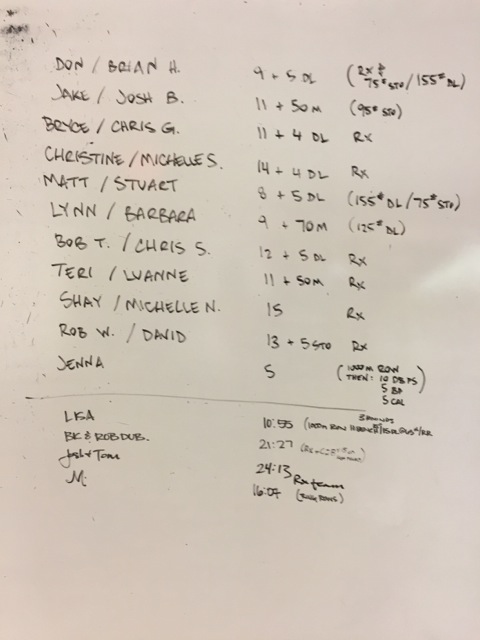 DON / BRIAN H. 9 + 5 DL (RX & 75# STO / 155# DL)
JAKE / JOSH B. 11 + 50M (95# STO)
BRYCE / CHRIS G. 11 + 4 DL RX
CHRISTINE / MICHELLE S. 14 + 4 DL RX
MATT / STUART 8 + 5 DL (155# DL / 75# STO)
LYNN / BARBARA 9 + 70M (125# DL)
BOB T. / CHRIS S. 12 + 5 DL RX
TERI / LUANNE 11 + 50M RX
SHAY / MICHELLE N. 15 RX
ROB W. / DAVID 13 + 5 STO RX
JENNA 5 (1000M ROW
THEN: 10 DB PS
5 BP
5 CAL)
LISA 10:55 (1000M ROW
BK & ROB DUB. 21:27
Josh & Tom 24:13 Rx team
M. 16:07